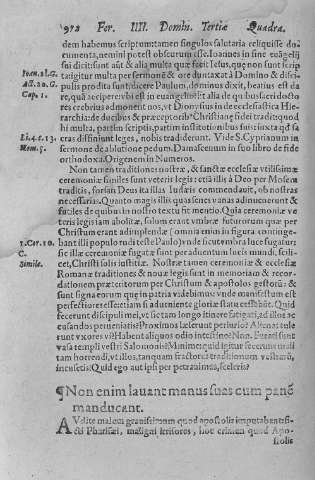 972 Fer. IIII. Domin. Tertiæ Quadra.
dem habemus scriptum: tamen singulos salutaria reliquisse do-
cumenta, nemini potest obscurum esse. Ioannes in sine euāgelij
sui dicit: sunt aut & alia multa quæ fecit Iesus, quæ non sunt scrip
Ioan. 21. G.
ta: igitur multa per sermonē & ore duntaxat à Domino & disci-
Act. 20. G.
pulis prodita sunt: dicere Paulum, dominus dixit, beatius est da
Cap. 1.
re, quā accipere: hāc est in euangelio: & alia de quibus sacri docto
res crebrius admonent nos, vt Dionysius in ecclesiastica Hie-
rarchia: de ducibus & præceptorib° Christianę fidei tradit: quod
hi multa, partim scriptis, partim institutionibus suis iuxta qđ sa
Li. 4. c. 13.
cras diffiniunt leges, nobis tradiderunt. Vide S. Cyprianum in
Hom. 5.
sermone de ablutione pedum. Damascenum in suo libro de fide
orthodoxa. Origenem in Numeros.
Non tamen traditiones nostræ, & sanctæ ecclesiæ vtilissimæ
ceremoniæ similes sunt veteris legis: etsi illa à Deo per Mosem
traditis, forsan Deus ita illas Iudæis commendauit, ob nostras
necessarias. Quanto magis illis quas senes vanas adinuenerunt &
futiles de quibus in nostro textu fit mentio. Quia ceremoniæ ve
teris legis iam abolitæ, solum erant vmbræ futurorum quæ per
Christum erant adimplendæ (omnia enim in figura continge-
1. Cor. 10.
bant illi populo rudi teste Paulo) vnde sicut vmbra luce fugatur:
C.
sic illæ ceremoniæ fugatæ sunt per aduentum lucis mundi, scili-
Simile.
cet, Christi Iesu iustitiæ. Nostræ tamen ceremoniæ & ecclesiæ
Romanæ traditiones & nouæ legis sunt in memoriam & recor-
dationem præteritorum per Christum & apostolos gestorū: &
sunt signa eorum quæ in patria videbimus: vnde manifestum est
perfectiores esse
fecerunt discipuli mei, vt sic tam longo itinere fatigati, ad illos ac
cusandos perueniatis? Proximos læserunt periurio? Alienas tule
runt vxores vi? Habent aliquos odio intestino? Non. Furati sunt
vasa templi vestri Salomonis? Minime: quid igitur fecerunt mali
tam horrendi, vt illos, tanquam fractores traditionum vestrarū,
incusetis? Quid ego aut ipsi perpetrauimus, sceleris?
¶ Non enim lauant manus suas cum panē
manducant.
AVdite malem grauissimum quod apostolis imputabant isti-
sci Pharisæi, maligni irrisores, hoc crimen quod Apo-
stolis